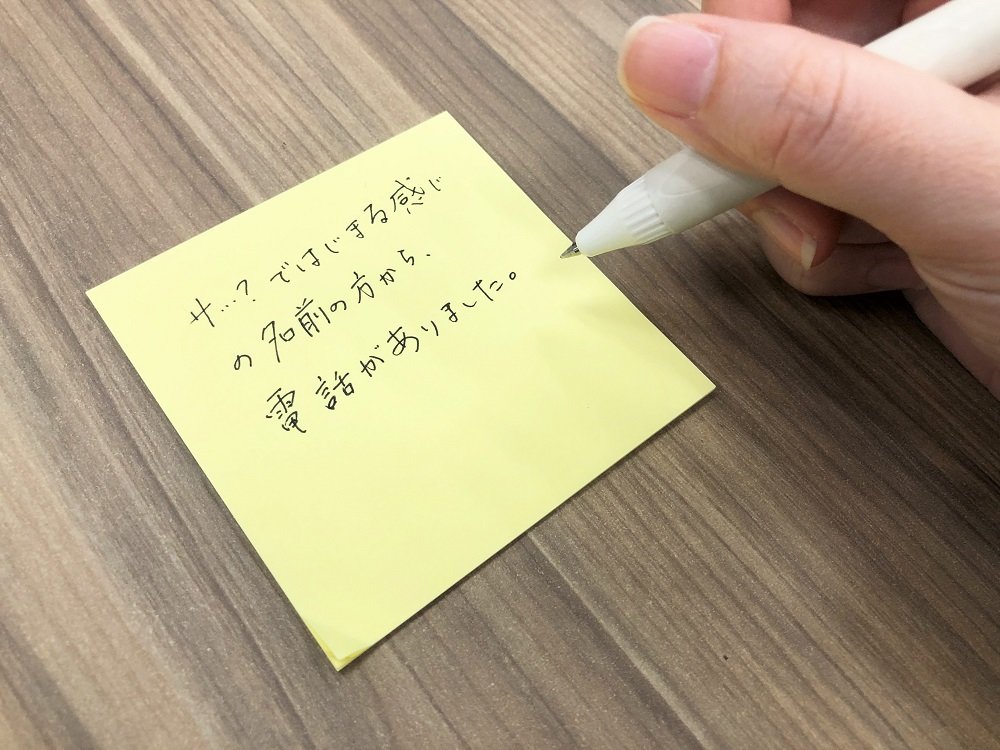 サ…?ではじまる感じ
の名前の方から、
電話がありました。